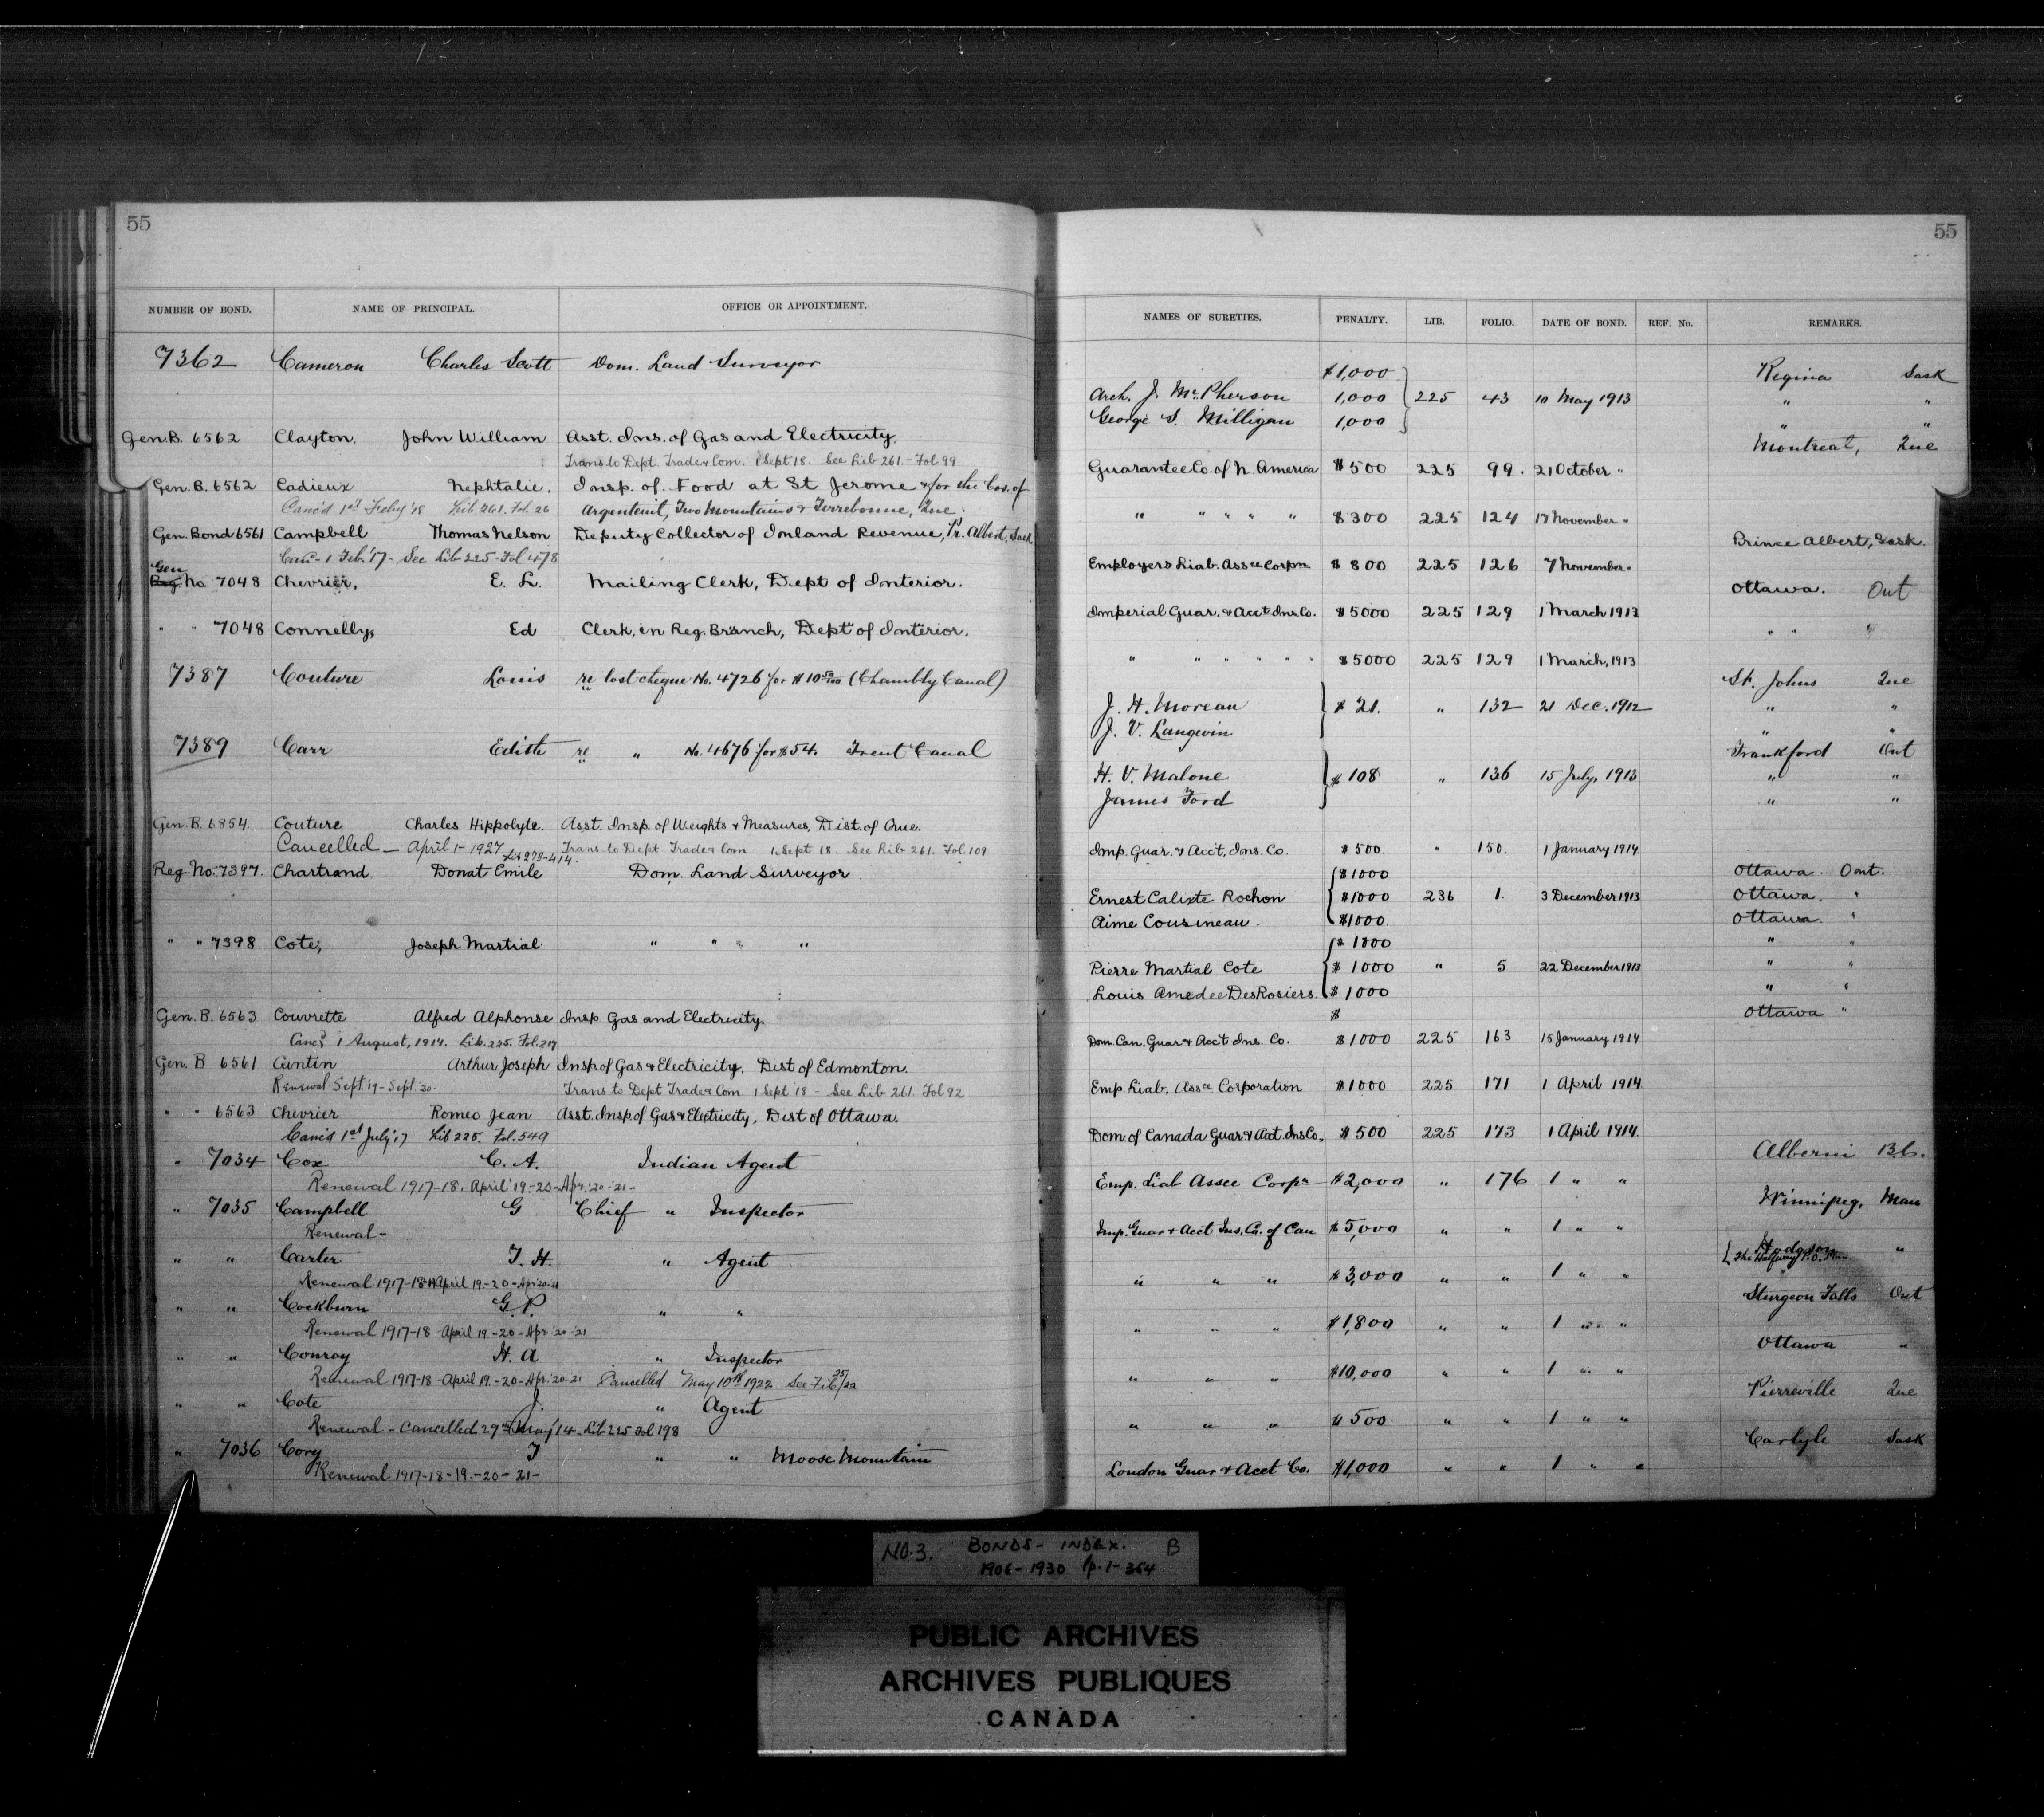 55
NUMBER OF BOND. NAME OF PRINCIPAL. OFFICE OR APPOINTMENT.
7362 Cameron Charles Scott Dom. Land Surveyor
Gen. B. 6562 Clayton, John William Asst. Ins. of Gas and Electricity.
Trans to Dept. Trade & Com. 1 Sept 18. See Lib 261 - Fol 99
Gen. B. 6562 Cadieux Nephtalie. Insp. of Food at St Jerome & for the Cos. of
Canc'd 1st Feby '18 Lib 261. Fol. 26 Argenteuil, Two Mountains & Terrebonne, Que.
Gen. Bond 6561 Campbell Thomas Nelson Deputy Collector of Inland Revenue, Pr. Albert, Sask
Canc - 1 Feb. '17 - See Lib 225 - Fol 478
Gen
Reg No. 7048 Chevrier, E. L. Mailing Clerk, Dept of Interior.
" " 7048 Connelly, Ed Clerk, in Reg. Branch, Dept of Interior.
7387 Couture Louis re lost cheque No. 4726 for $10 50/100 (Chambly Canal)
7389 Carr Edith re " No. 4676 for $54. Trent Canal
Gen. B. 6854. Couture Charles Hippolyte. Asst. Insp. of Weights & Measures, Dist. of Que.
Cancelled - April 1 - 1927 Lib 273-414. Trans to Dept Trade & Com 1 Sept 18. See Lib 261. Fol 109
Reg. No. 7397. Chartrand, Donat Emile Dom. Land Surveyor.
" " 7398 Cote, Joseph Martial " " " "
Gen. B. 6563 Couvrette Alfred Alphonse Insp. Gas and Electricity.
Canc'd 1 August, 1914. Lib. 225. Fol. 217
Gen. B 6561 Cantin Arthur Joseph Insp. of Gas & Electricity, Dist of Edmonton.
Renewal Sept. '19 - Sept. 20. Trans to Dept Trade & Com. 1 Sept 18 - See Lib 261. Fol 92
" " 6563 Chevrier Romeo Jean Asst. Insp. of Gas & Electricity, Dist of Ottawa.
Canc'd 1st July '17 Lib 225. Fol. 549
" 7034 Cox C. A. Indian Agent
Renewal 1917-18. April '19-20 - Apr. '20-21-
" 7035 Campbell G Chief " Inspector
Renewal -
" " Carter T. H. " Agent
Renewal 1917-18 April 19.-20-Apr 20-21
" " Cockburn G. P. " "
Renewal 1917-18 April 19.-20-Apr '20-21
" " Conroy H. A " Inspector
Renewal 1917-18-April 19.-20-Apr. '20-21 Cancelled May 10th 1922
" " Cote J. " Agent
Renewal - Cancelled 29th May '14 - Lib 225 Fol 198
" 7036 Cory T " " Moose Mountain
Renewal 1917-18-19.-20-21-
55
NAMES OF SURETIES. PENALTY. LIB. FOLIO. DATE OF BOND. REF. No. REMARKS.
$1,000 Regina Sask
Arch. J. McPherson 1,000 225 43 10 May 1913 " "
George S. Milligan 1,000 " "
Montreal, Que
Guarantee Co. of N. America $500 225 99. 21 October "
" " " " " $300 225 124 17 November "
Prince Albert, Sask.
Employers Liab. Assce Corpn. $800 225 126 7 November "
Ottawa. Ont
Imperial Guar. & Acct. Ins. Co. $5000 225 129 1 March 1913
" " "
" " " " " " $5000 225 129 1 March, 1913
St. Johns Que
J. H. Moreau $21. " 132 21 Dec. 1912 " "
J. V. Langevin " "
Frankford Ont
H. V. Malone $108 " 136 15 July, 1913 " "
James Ford " "
Imp. Guar. & Acc't, Ins. Co. $500. " 150. 1 January 1914
$1000 Ottawa. Ont.
Ernest Calixte Rochon $1000 236 1. 3 December 1913 Ottawa. "
Aime Cousineau. $1000. Ottawa. "
$1000 " "
Pierre Martial Cote $1000 " 5 22 December 1913 " "
Louis Amedee DesRosiers. $1000 " "
$ Ottawa "
Dom. Can. Guar & Acc't Ins. Co. $1000 225 163 15 January 1914
Emp. Liab. Assce Corporation $1000 225 171 1 April 1914
Dom. of Canada Guar & Acct. Ins Co. $500 225 173 1 April 1914.
Alberni B.C.
Emp. Liab Assce Corpn $2,000 " 176 1 " "
Winnipeg, Man
Imp. Guar & Acct Ins. Co. of Can $5,000 " " 1 " "
Hodgson "
The Halfway P.O. Man
" " " $3,000 " " 1 " "
Sturgeon Falls Ont
" " " $1,800 " " 1 " "
Ottawa "
" " " $10,000 " " 1 " "
Pierreville Que
" " " $500 " " 1 " "
Carlyle Sask
London Guar & Acct Co. $1,000 " " 1 " "
NO. 3. BONDS - INDEX. B
1906 - 1930 p. 1 - 354
PUBLIC ARCHIVES
ARCHIVES PUBLIQUES
CANADA